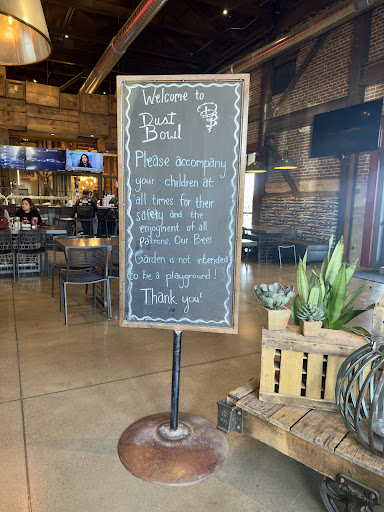 Welcome to
Dust
Bowl
Please accompany
your children at
all times for ther
safety and the
enjoyment of all
Patrons. Our Beer
Garden is not intended
to be a playground!
Thank you!